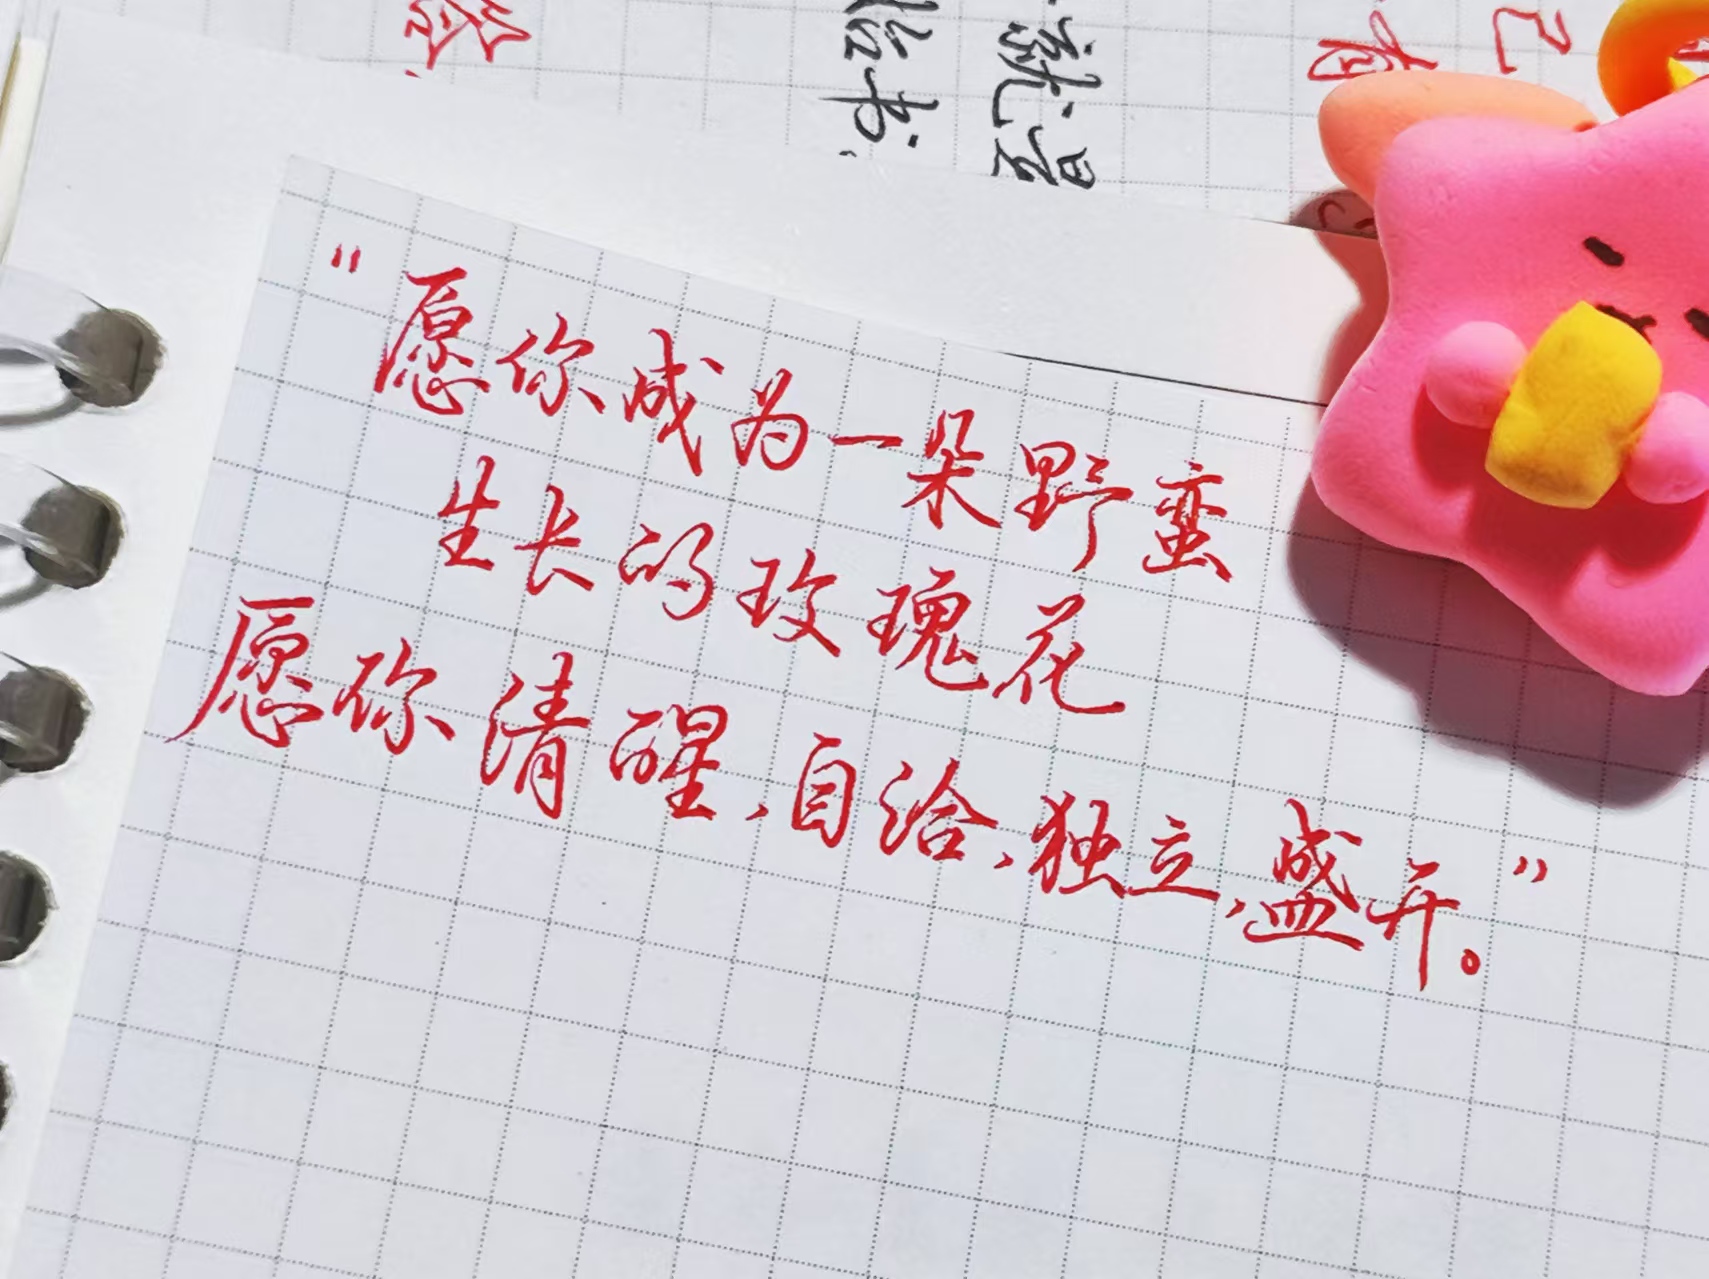 “愿你成为一朵野蛮
生长的玫瑰花
愿你清醒、自给、独立、盛开。”
就是
给书、